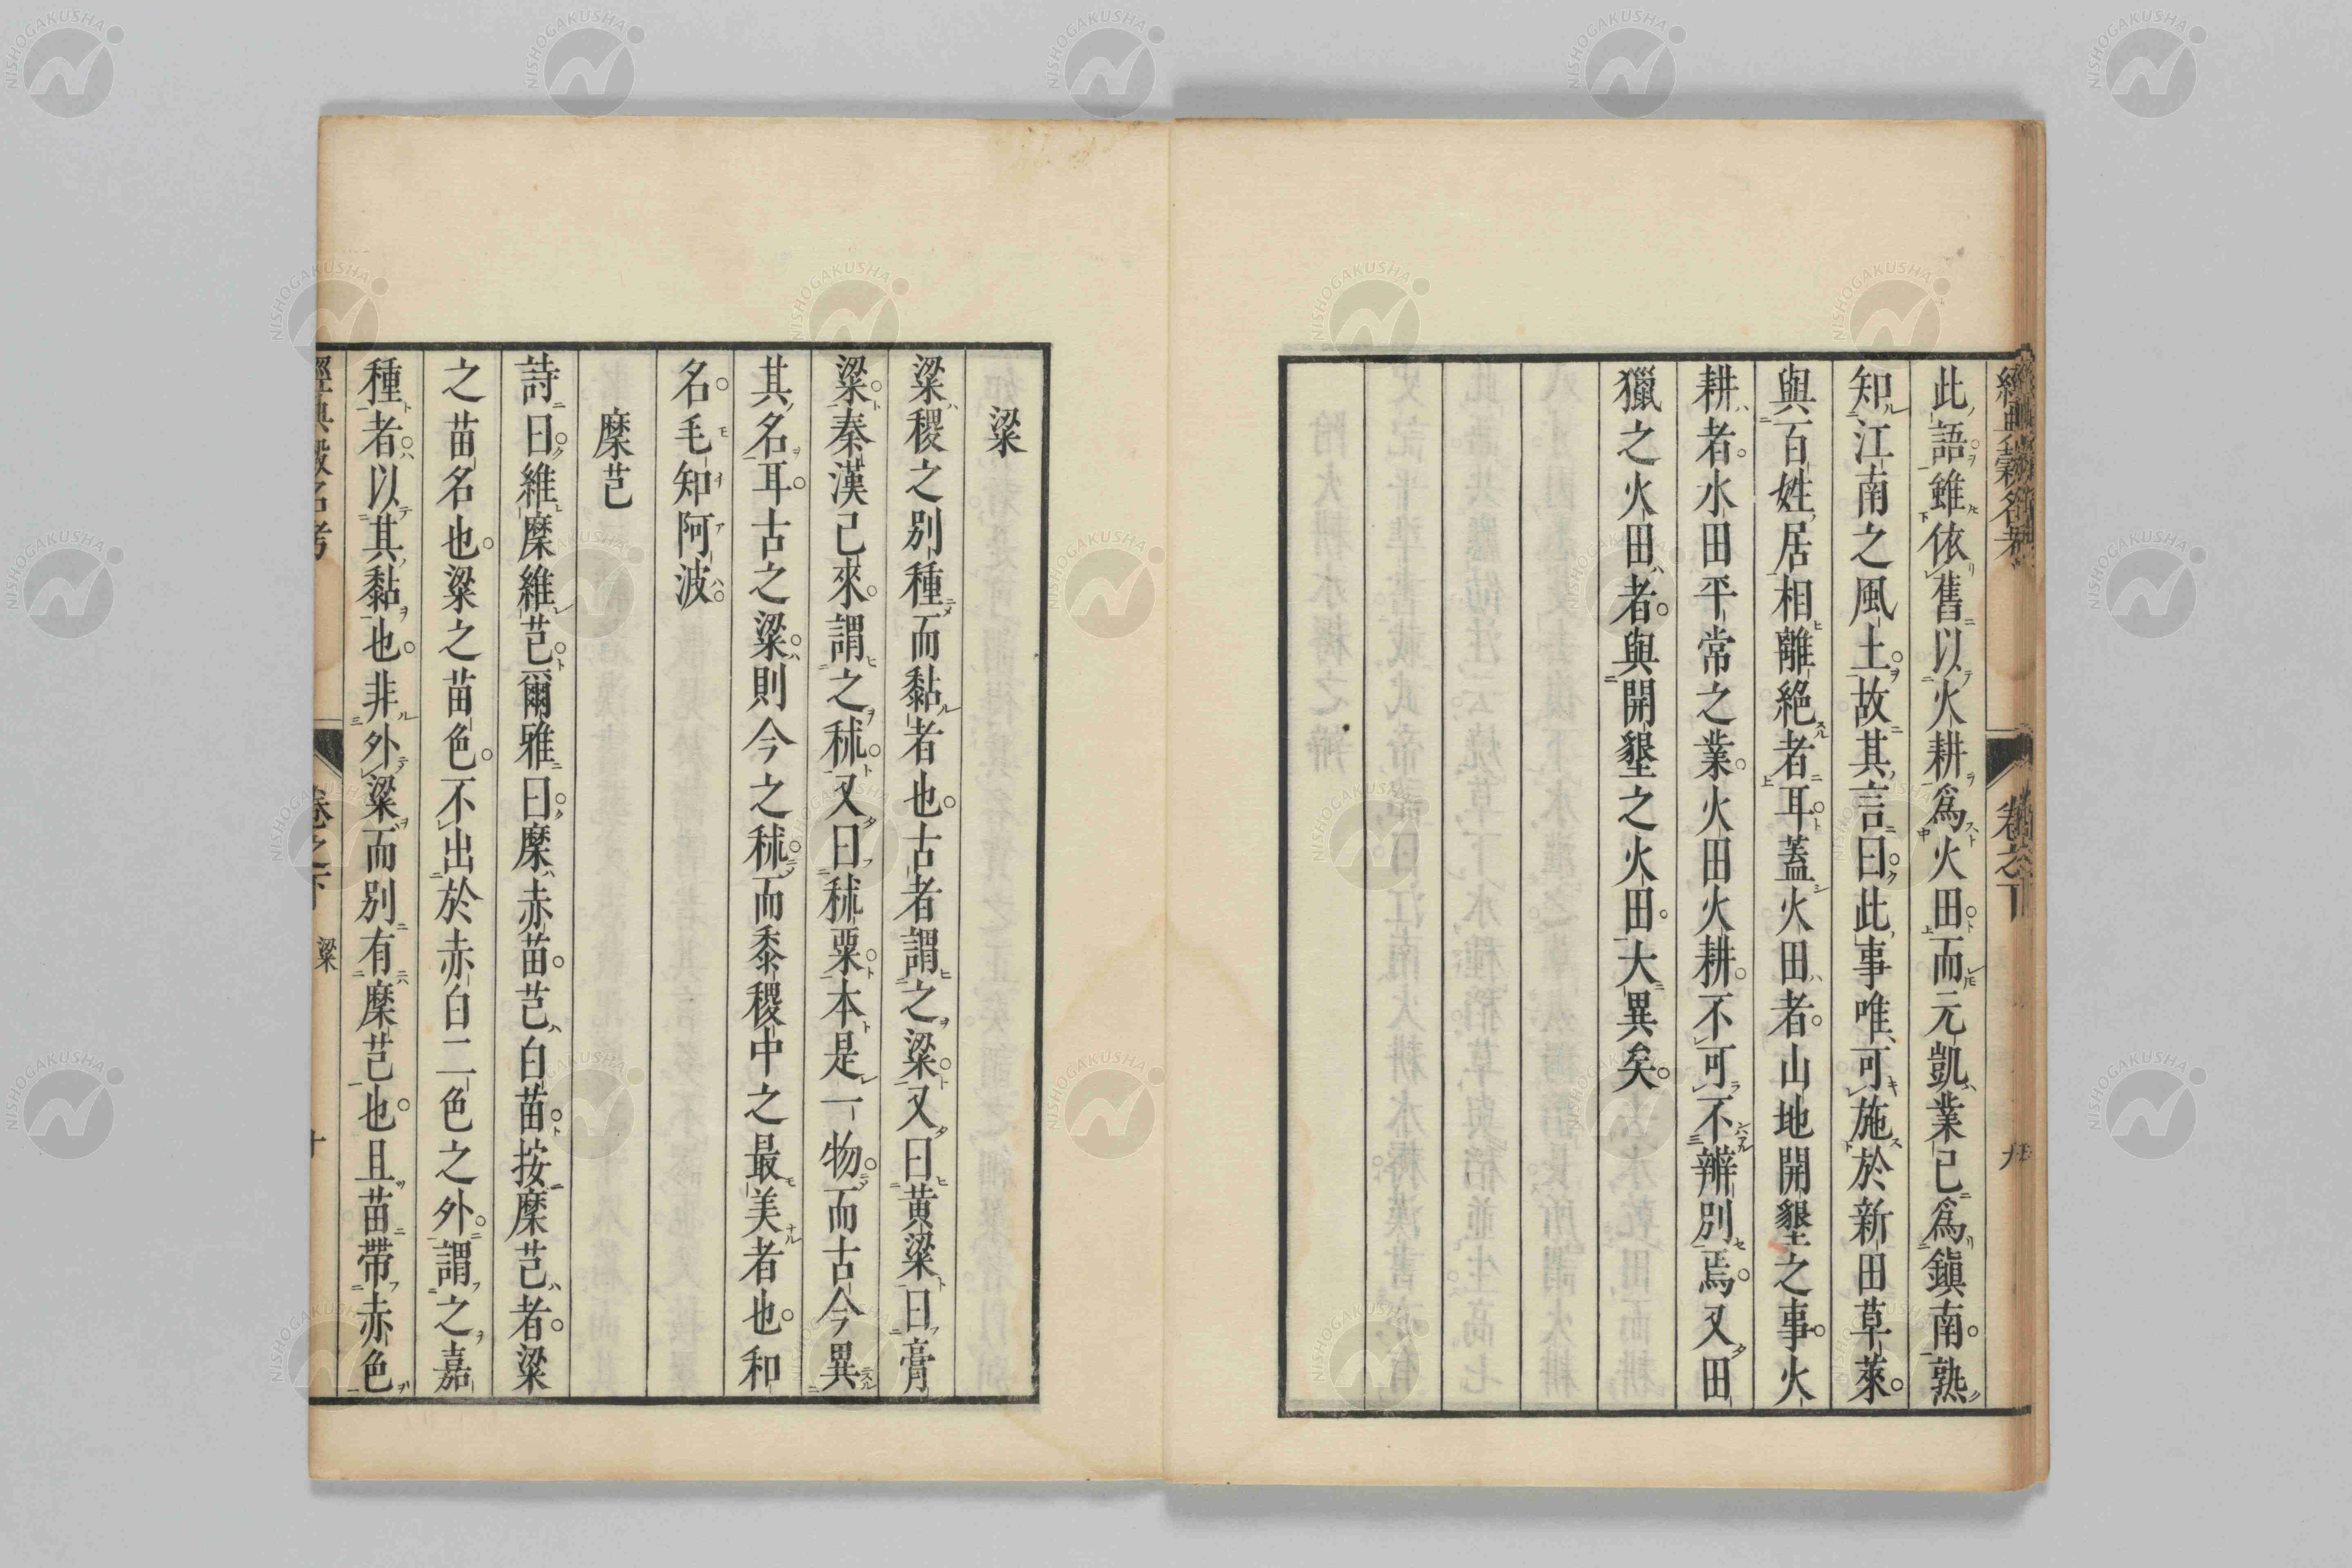 經典穀名考 卷之下 九
此語雖依舊以火耕爲火田而元凱業已爲鎭南熟
知江南之風土故其言曰此事唯可施於新田草萊
與百姓居相離絶者耳蓋火田者山地開墾之事火
耕者水田平常之業火田火耕不可不辨別焉又田
獵之火田者與開墾之火田大異矣
粱
粱稷之別種而黏者也古者謂之粱又曰黄粱曰膏
粱秦漢已來謂之秫又曰秫粟本是一物而古今異
其名耳古之粱則今之秫而黍稷中之最美者也和
名毛知阿波
穈芑
詩曰維穈維芑爾雅曰穈赤苗芑白苗按穈芑者粱
之苗名也粱之苗色不出於赤白二色之外謂之嘉
種者以其黏也非外粱而別有穈芑也且苗帶赤色
經典穀名考 卷之下 粱 十